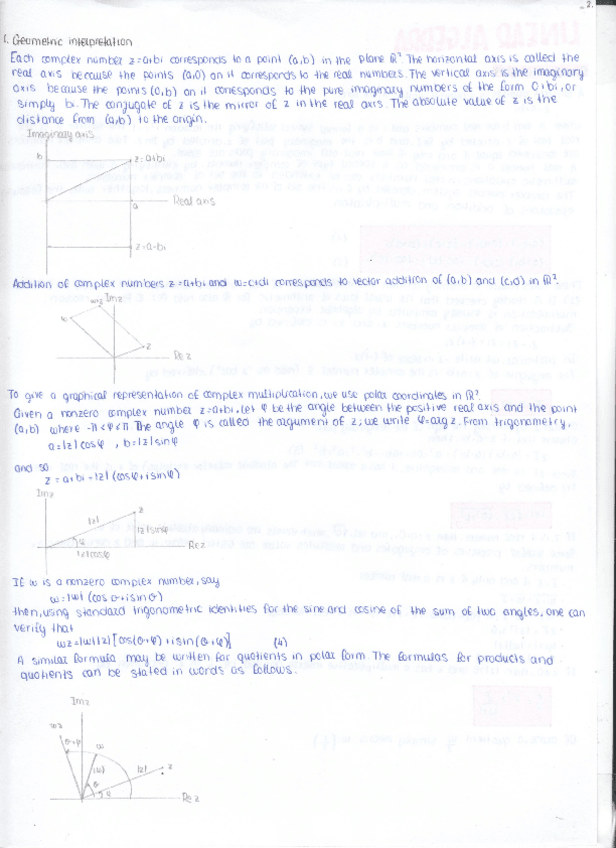 2.
1. Geometric interpretation
Each complex number z=a+bi corresponds to a point (a,b) in the plane ℝ². The horizontal axis is called the
real axis because the points (a,0) on it corresponds to the real numbers. The vertical axis is the imaginary
axis because the points (0,b) on it corresponds to the pure imaginary numbers of the form 0+bi, or
simply bi. The conjugate of z is the mirror of z in the real axis. The absolute value of z is the
distance from (a,b) to the origin.
Imaginary axis
b
z=a+bi
a
Real axis
z=a-bi
Addition of complex numbers z=a+bi and w=c+di corresponds to vector addition of (a,b) and (c,d) in ℝ².
w+z
Im z
w
z
Re z
To give a graphical representation of complex multiplication, we use polar coordinates in ℝ².
Given a nonzero complex number z=a+bi, let φ be the angle between the positive real axis and the point
(a,b) where -π<φ≤π The angle φ is called the argument of z; we write φ=arg z. From trigonometry,
a=|z|cosφ , b=|z|sinφ
and so
z=a+bi=|z|(cosφ+isinφ)
Im z
z
|z|
|z|sinφ
φ
|z|cosφ
Re z
If w is a nonzero complex number, say
w=|w|(cos θ+isin θ)
then, using standard trigonometric identities for the sine and cosine of the sum of two angles, one can
verify that
wz=|w||z|[cos(θ+φ)+isin(θ+φ)] (4)
A similar formula may be written for quotients in polar form. The formulas for products and
quotients can be stated in words as follows.
Im z
wz
θ+φ
w
|w|
|z|
z
θ
φ
Re z